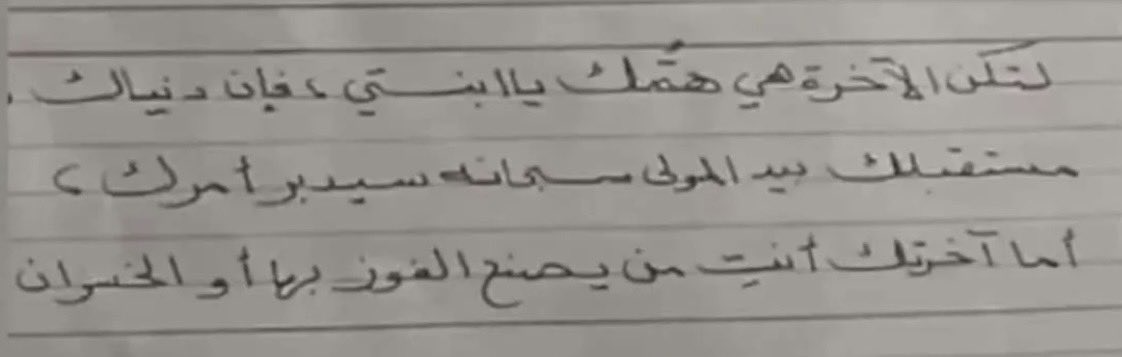 لتكن الآخرة هي همّك يا ابنتي، فإن دنياك،
مستقبلك بيد المولى سبحانه سيدبر أمرك،
أما آخرتك أنتِ من يصنع الفوز بها أو الخسران